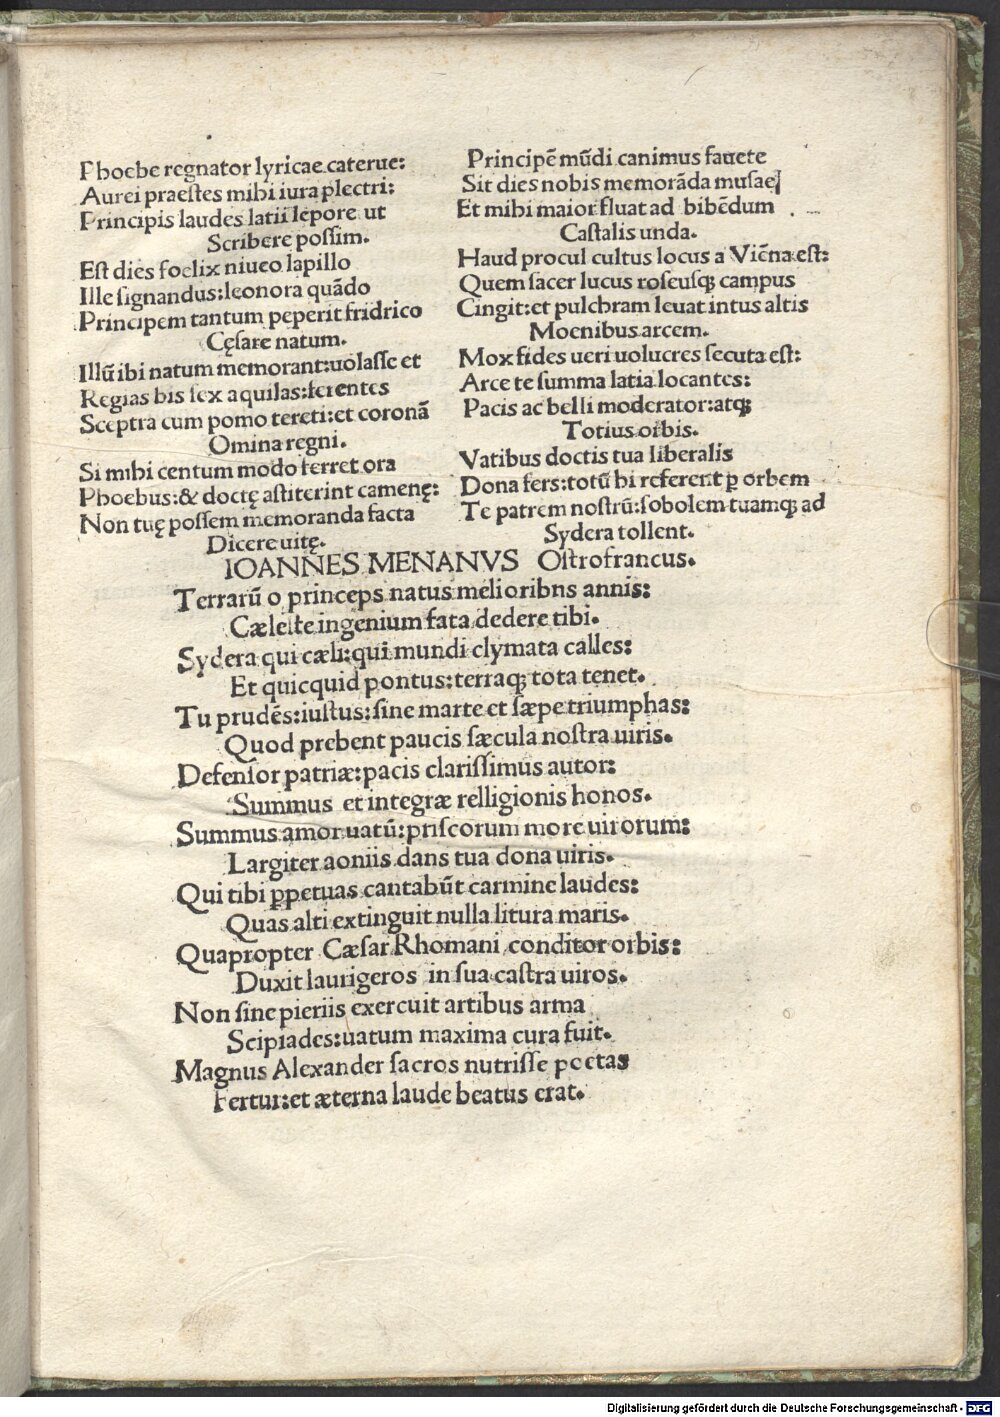 Phoebe regnator lyricae caterue:
Aurei praestes mihi iura plectri:
Principis laudes latii lepore ut
Scribere possim.
Est dies foelix niueo lapillo
Ille signandus: leonora quādo
Principem tantum peperit fridrico
Cęsare natum.
Illū ibi natum memorant: uolasse et
Regias bis sex aquilas: ferentes
Sceptra cum pomo tereti: et coronā
Omina regni.
Si mihi centum modo ferret ora
Phoebus: & doctę astiterint camenę:
Non tuę possem memoranda facta
Dicere uitę.
Principē mūdi canimus fauete
Sit dies nobis memorāda musae
Et mihi maior fluat ad bibēdum
Castalis unda.
Haud procul cultus locus a Viēna est:
Quem sacer lucus roseusqꝫ campus
Cingit: et pulchram leuat intus altis
Moenibus arcem.
Mox fides ueri uolucres secuta est:
Arce te summa latia locantes:
Pacis ac belli moderator: atqꝫ
Totius orbis.
Vatibus doctis tua liberalis
Dona fers: totū hi referent ꝑ orbem
Te patrem nostrū: sobolem tuamqꝫ ad
Sydera tollent.
IOANNES MENANVS Ostrofrancus.
Terrarū o princeps natus melioribns annis:
Cæleste ingenium fata dedere tibi.
Sydera qui cæli: qui mundi clymata calles:
Et quicquid pontus: terraqꝫ tota tenet.
Tu prudēs: iustus: sine marte et sæpe triumphas:
Quod prebent paucis sæcula nostra uiris.
Defensor patriæ: pacis clarissimus autor:
Summus et integræ relligionis honos.
Summus amor uatū: priscorum more uirorum:
Largiter aoniis dans tua dona uiris.
Qui tibi ꝑpetuas cantabūt carmine laudes:
Quas alti extinguit nulla litura maris.
Quapropter Cæsar Rhomani conditor orbis:
Duxit laurigeros in sua castra uiros.
Non sine pieriis exercuit artibus arma
Scipiades: uatum maxima cura fuit.
Magnus Alexander sacros nutrisse poetas
Fertur: et æterna laude beatus erat.
Digitalisierung gefördert durch die Deutsche Forschungsgemeinschaft - DFG